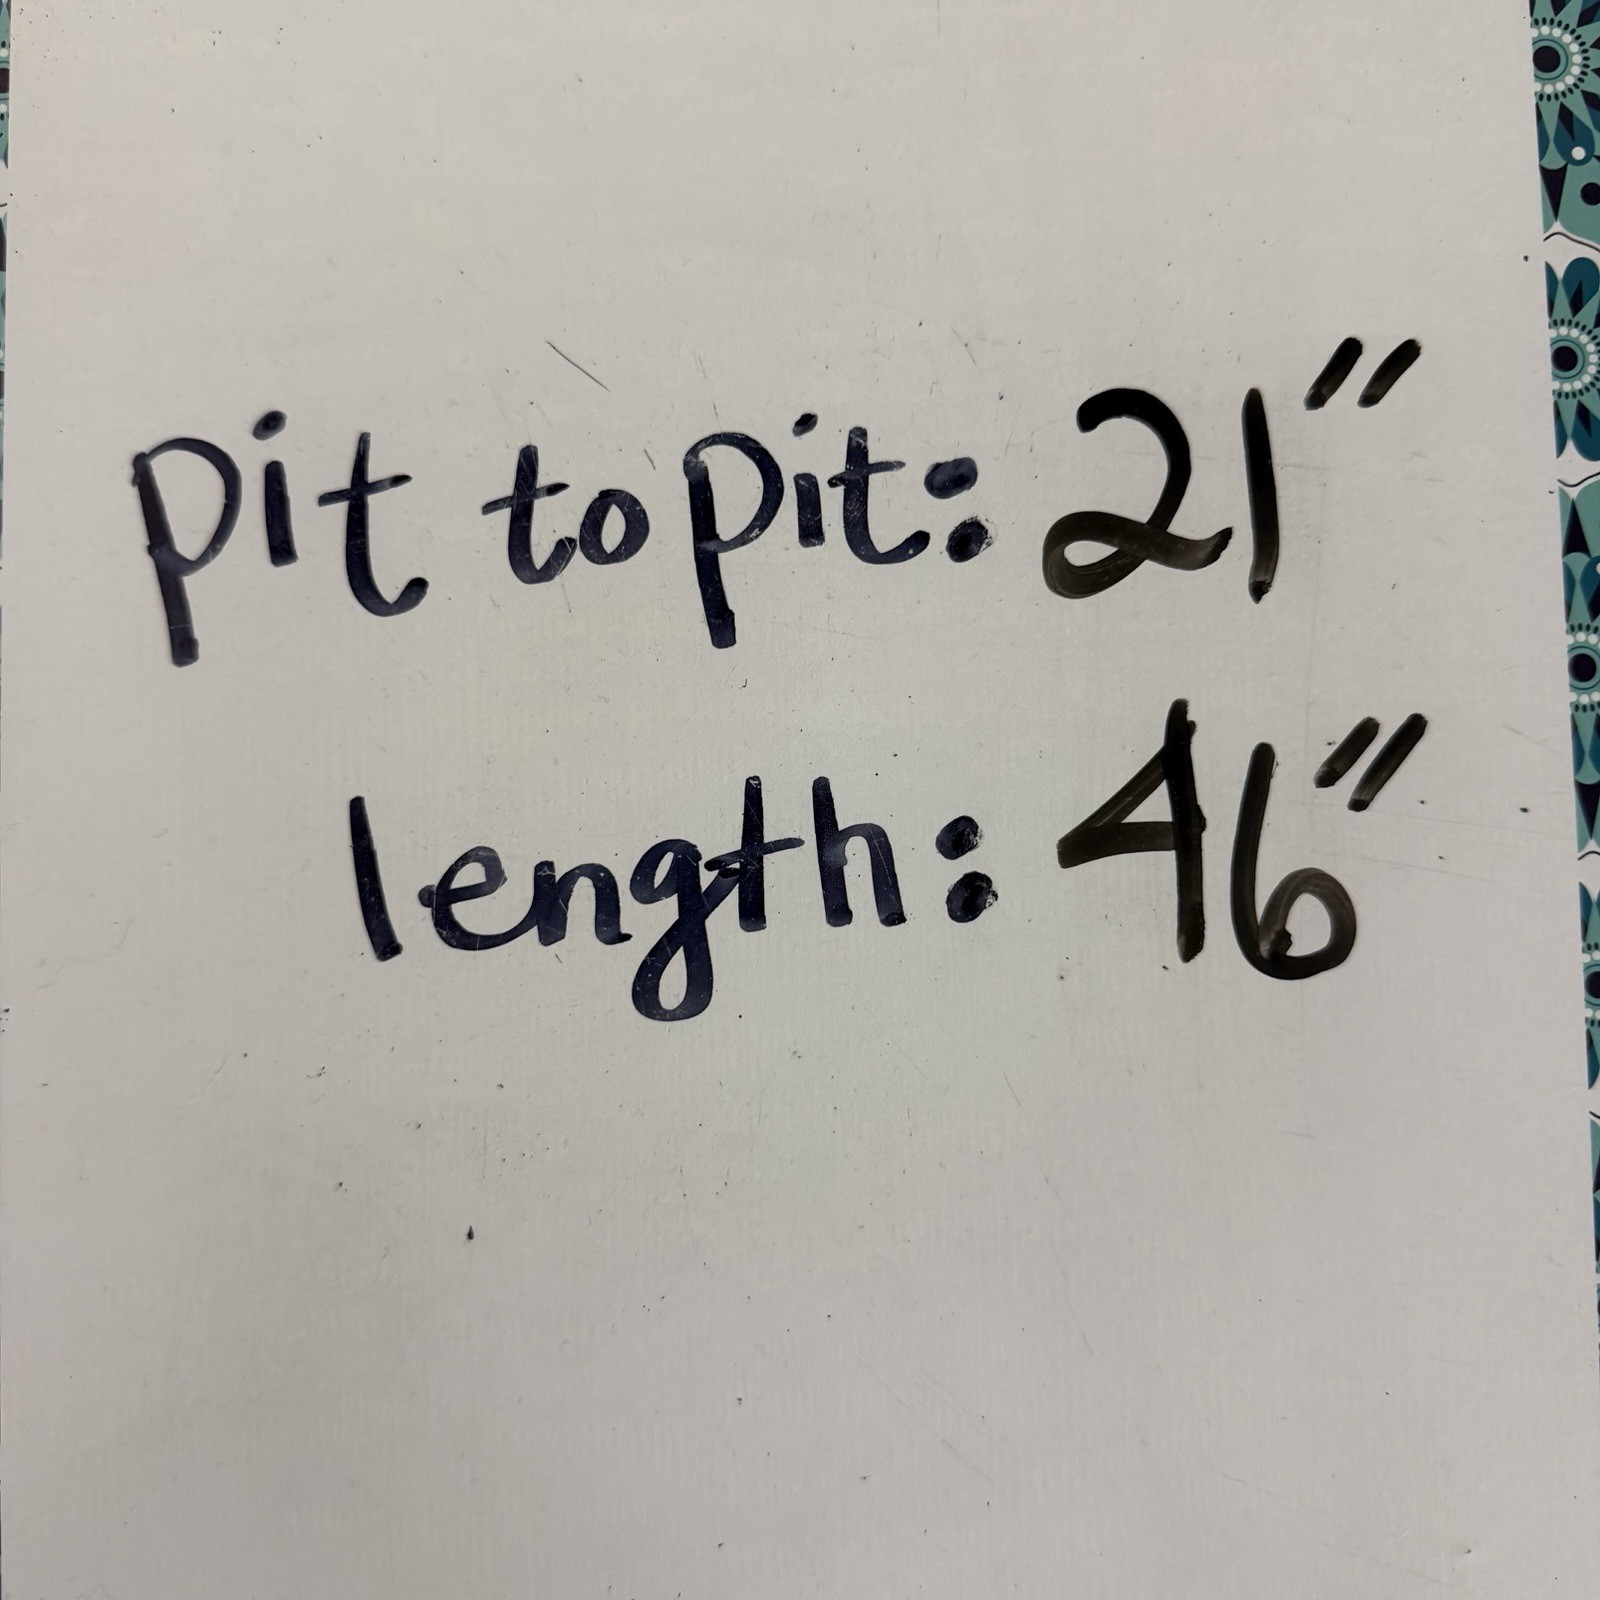 pit to pit: 21"
length: 46"